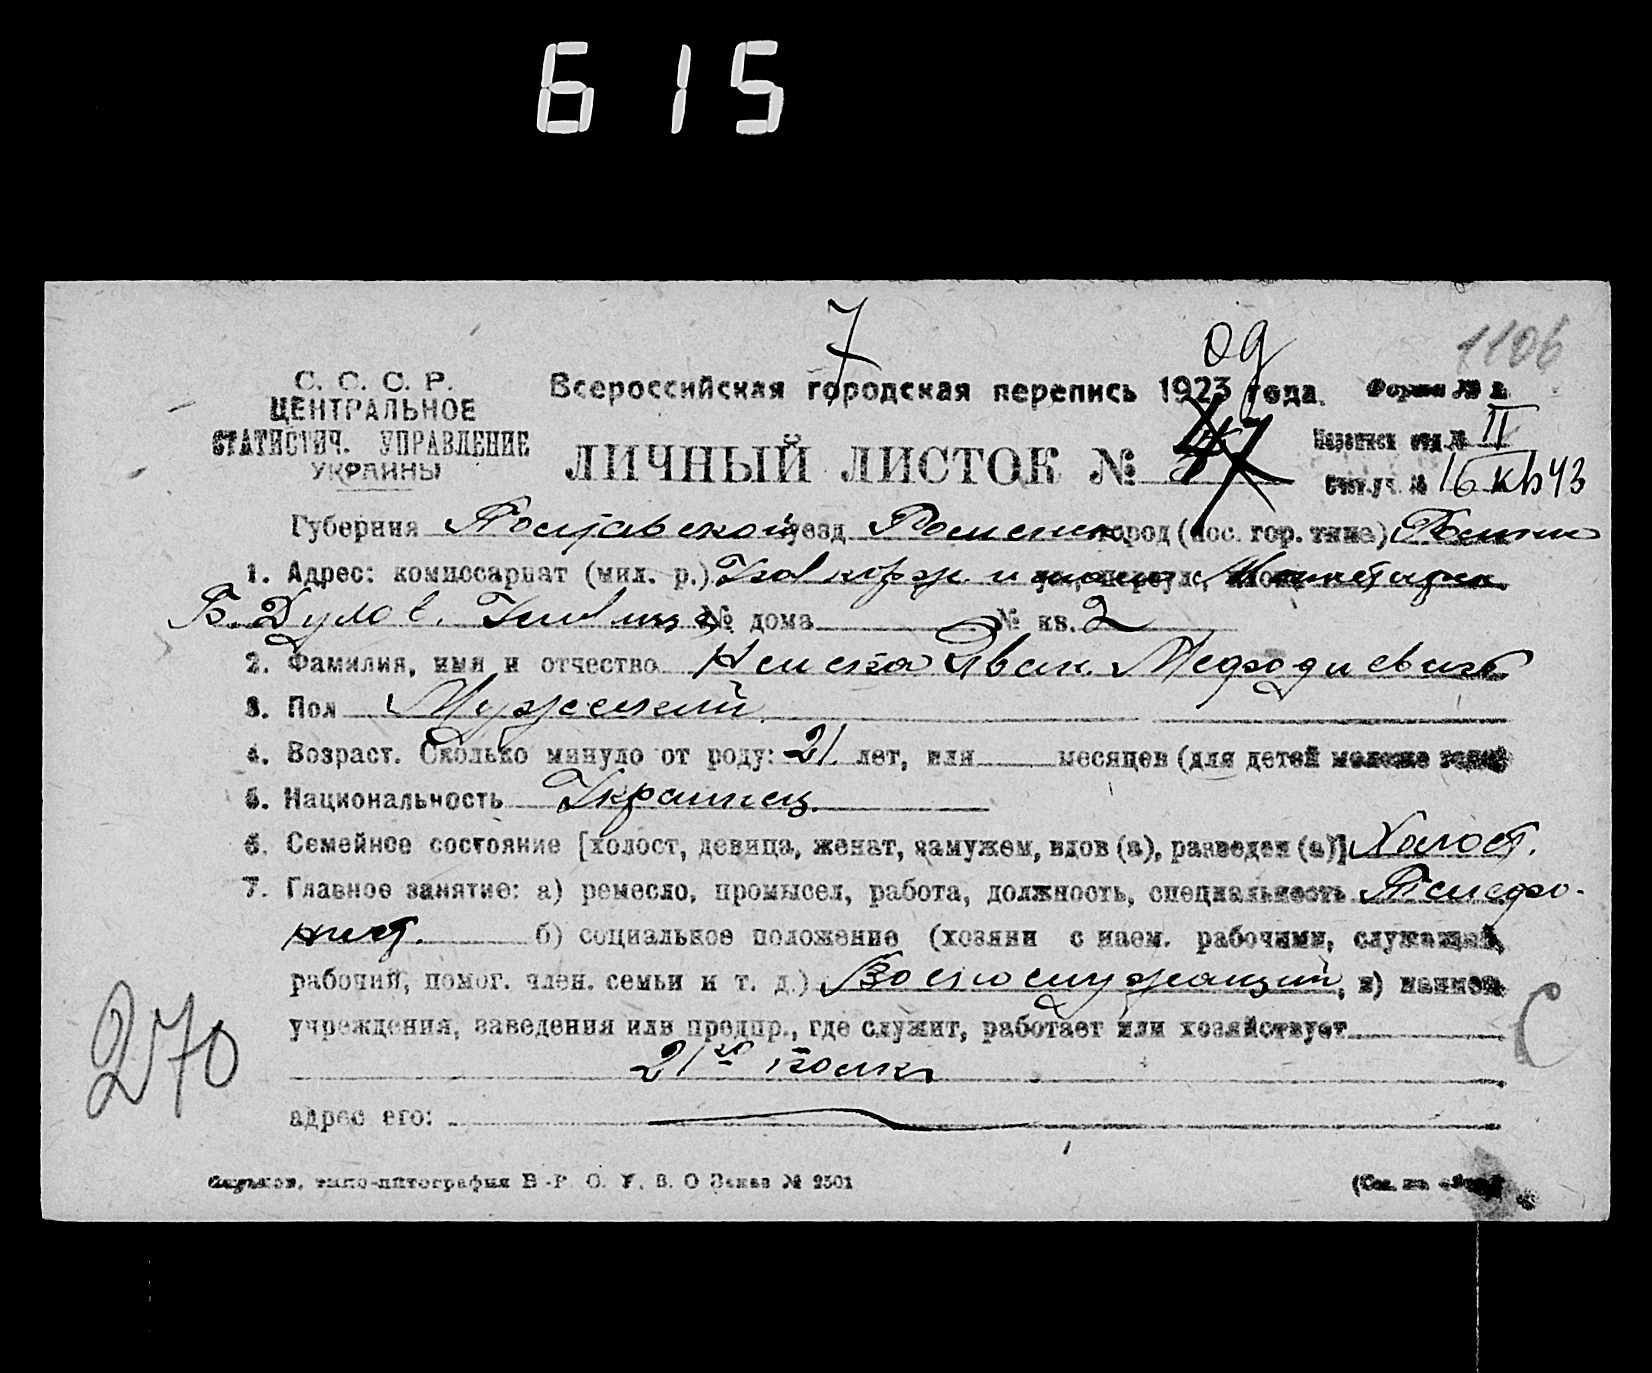 615
7
09
1106
С. С. С. Р.
ЦЕНТРАЛЬНОЕ
СТАТИСТИЧ. УПРАВЛЕНИЕ
УКРАИНЫ
Всероссийская городская перепись 1923 года.
Форма №
ЛИЧНЫЙ ЛИСТОК №
отд. № II
Счет. уч. № 16 кв 43
Губерния Полтавской уезд Роменск город (пос. гор. типа) Ромны
1. Адрес: комиссариат (мил. р.)
№ дома № кв. 2
2. Фамилия, имя и отчество Иван Мефодиевич
3. Пол Мужеский
4. Возраст. Сколько минуло от роду: 21 лет, или месяцев (для детей моложе года)
5. Национальность Украинец
6. Семейное состояние [холост, девица, женат, замужем, вдов (а), разведен (а)] Холост.
7. Главное занятие: а) ремесло, промысел, работа, должность, специальность Телефо-
нист. б) социальное положение (хозяин с наем. рабочими, служащий,
рабочий, помог. член. семьи и т. д.) Военнослужащий, в) наимен.
учреждения, заведения или предпр., где служит, работает или хозяйствует
21го полка
адрес его:
270
С
Харьков, типо-литография В.-Р. О. У. В. О Заказ № 2501